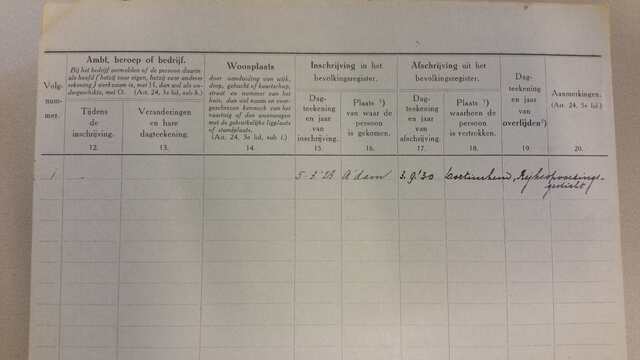 Volg-
num-
mer.
Ambt, beroep of bedrijf.
Bij het bedrijf vermelden of de persoon daarin
als hoofd (hetzij voor eigen, hetzij voor andere
rekening) werkzaam is, met H, dan wel als on-
dergeschikte, met O. (Art. 24, 3e lid, sub h.)
Tijdens
de
inschrijving.
12.
Veranderingen
en hare
dagteekening.
13.
Woonplaats
door aanduiding van wijk,
dorp, gehucht of buurtschap,
straat en nummer van het
huis, dan wel naam en voor-
geschreven kenmerk van het
vaartuig of den woonwagen
met de gebruikelijke ligplaats
of standplaats.
(Art. 24, 3e lid, sub i.)
14.
Inschrijving in het
bevolkingsregister.
Dag-
teekening
en jaar
van
inschrijving.
15.
Plaats ¹)
van waar de
persoon
is gekomen.
16.
Afschrijving uit het
bevolkingsregister.
Dag-
teekening
en jaar
van
afschrijving.
17.
Plaats ¹)
waarheen de
persoon
is vertrokken.
18.
Dag-
teekening
en jaar
van
overlijden²)
19.
Aanmerkingen.
(Art. 24, 5e lid.)
20.
1 A'dam 3.9.'30